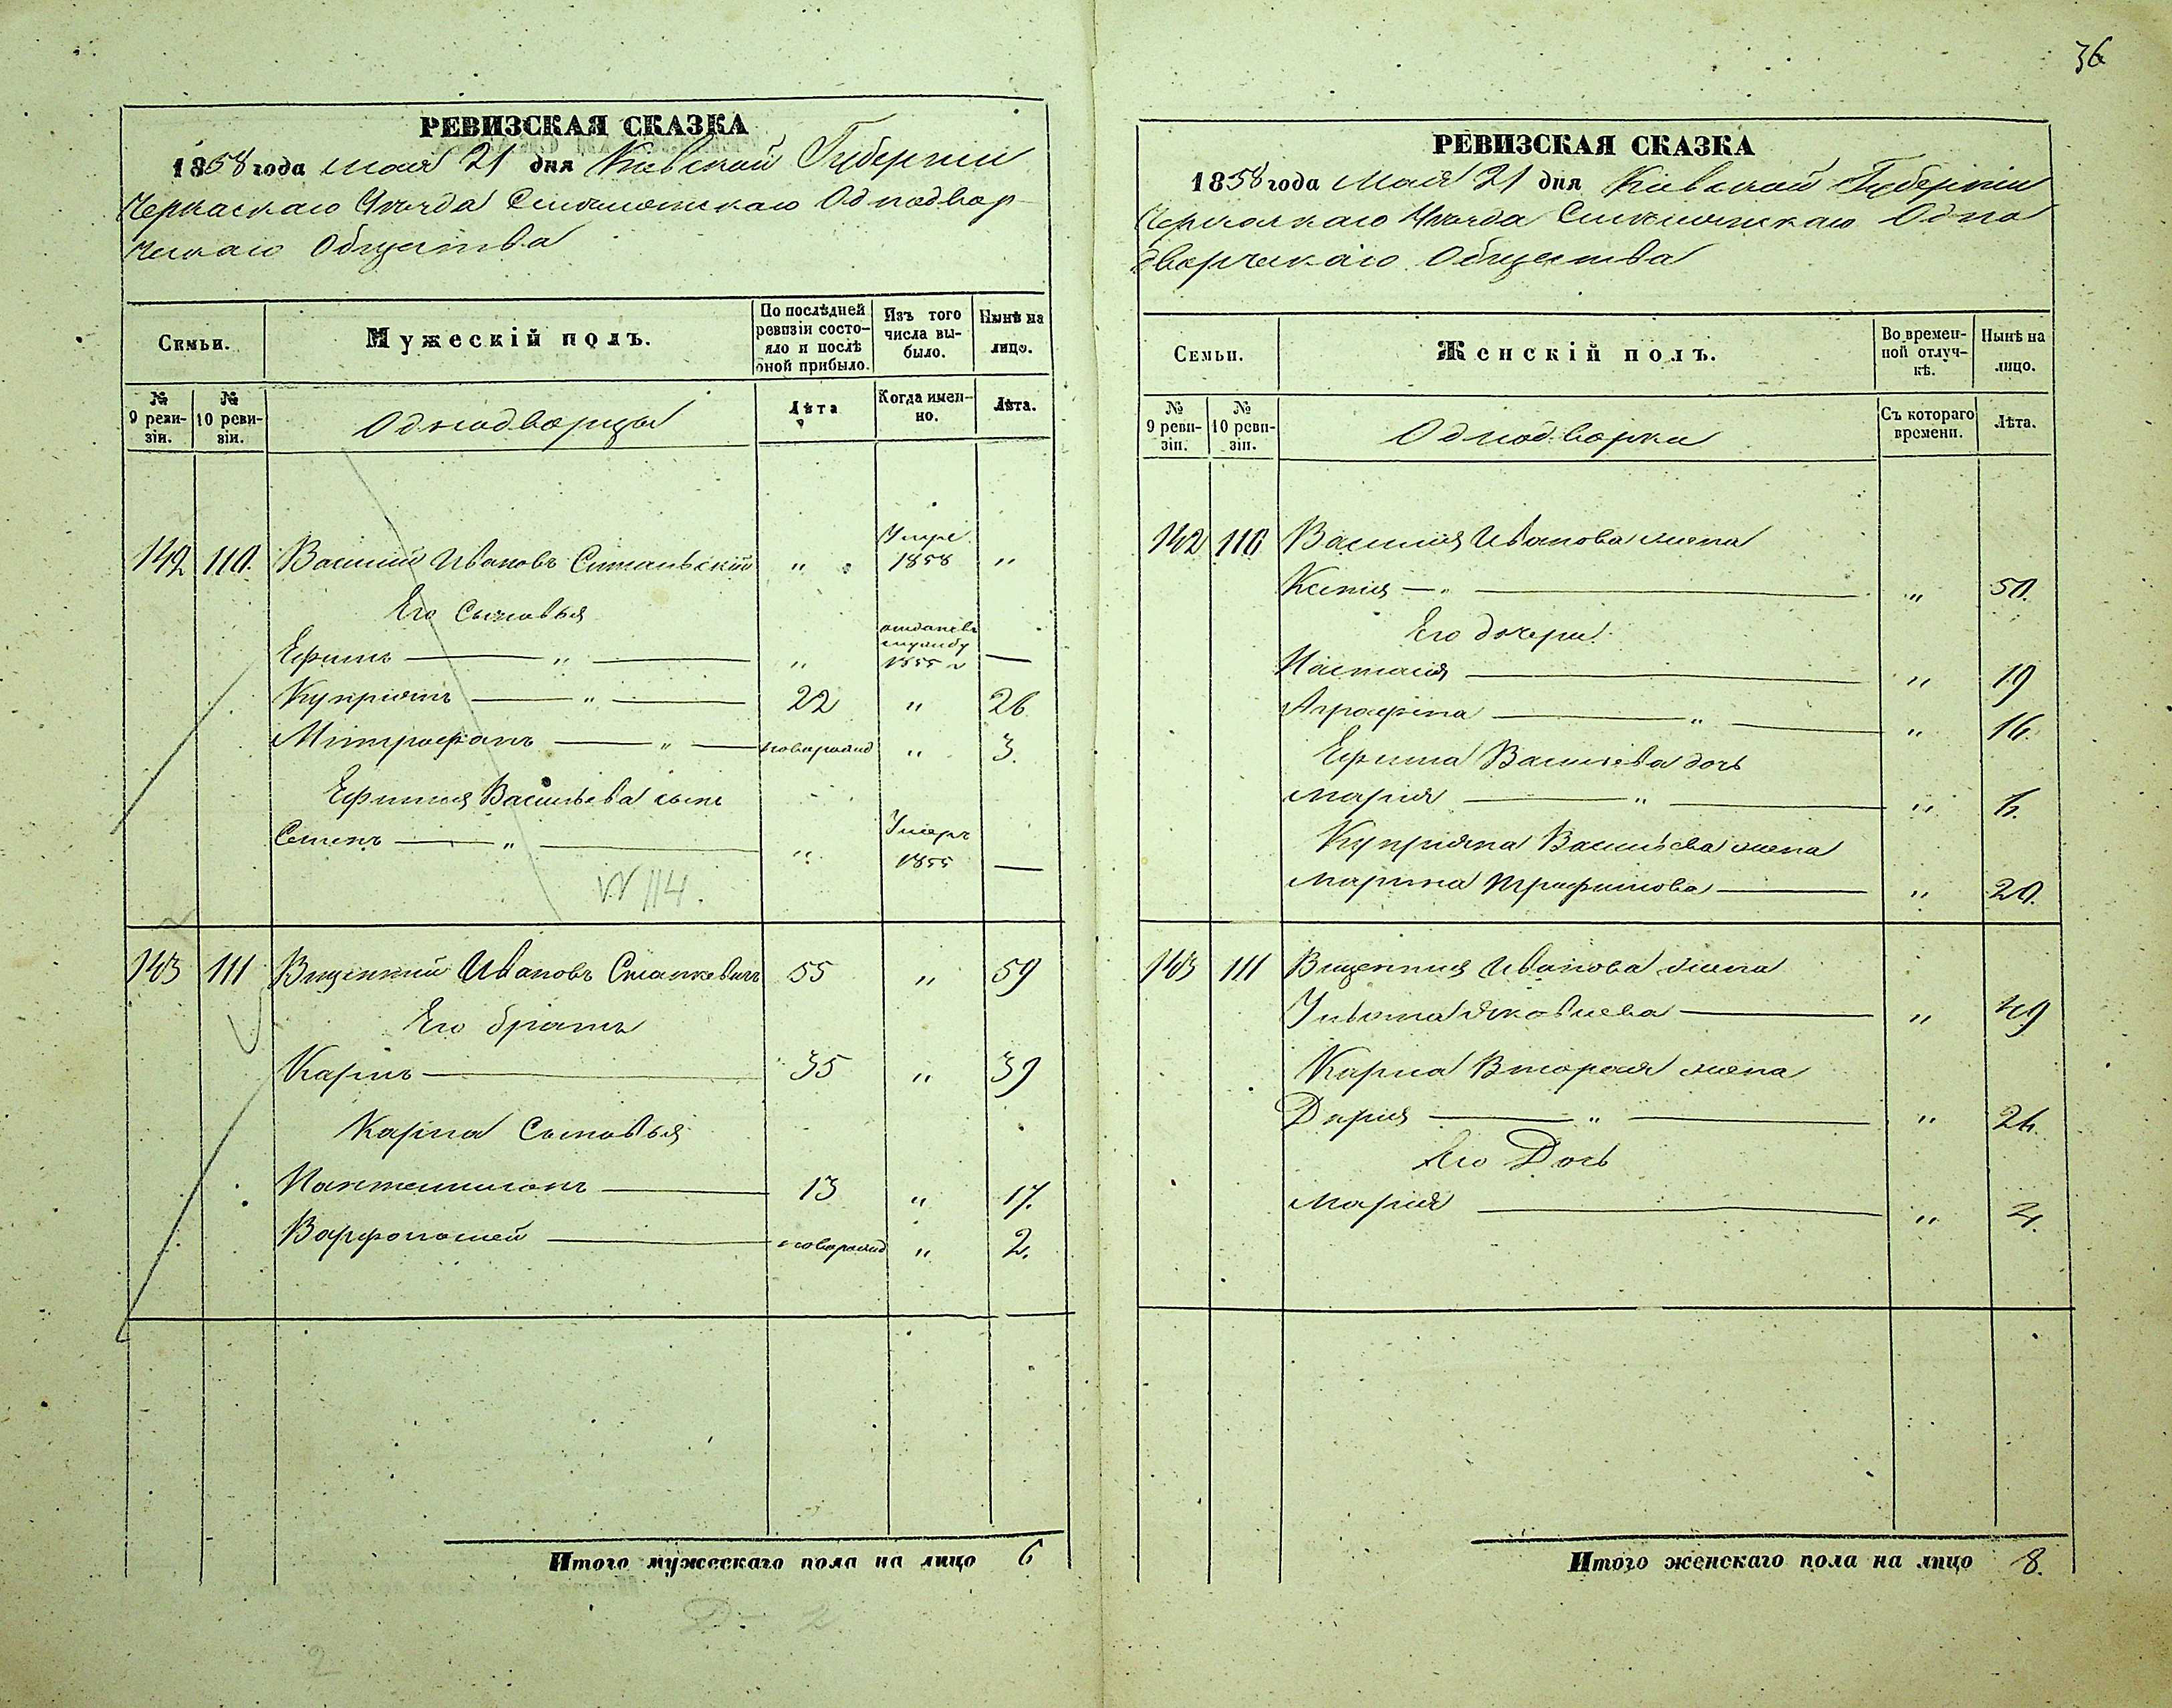 36
РЕВИЗСКАЯ СКАЗКА
1858 года мая 21 дня Киевской Губерніи
Черкаскаго Уѣзда Смѣлянскаго Однодвор-
ческаго Общества
Семьи.
Мужескій полъ.
По послѣдней ревизіи состо-яло и послѣ оной прибыло.
Изъ того числа вы-было.
Нынѣ на лицо.
№ 9 реви-зіи.
№ 10 реви-зіи.
Однодворцы
Лѣта
Когда имен-но.
Лѣта.
142 110. Василий Ивановъ " Умре 1858 "
Его Сыновья
Ефимъ — " — " 1855 —
Куприянъ — " — 22 " 26
Митрофанъ — " — новорожд " 3.
Ефима Васильева сынъ
Семенъ — " — " Умеръ 1855 —
№ 114.
143 111 Викентий Ивановъ Станкевичъ 55 " 59
Его братъ
Карпъ — 35 " 39
Карпа Сыновья
Пантелимонъ — 13 " 17.
Варфоломей — новорожд " 2.
Итого мужескаго пола на лицо 6
РЕВИЗСКАЯ СКАЗКА
1858 года Мая 21 дня Кіевской Губерніи
Черкаскаго Уѣзда Смѣлянскаго Одно
дворческаго Общества
Семьи.
Женскій полъ.
Во времен-ной отлуч-кѣ.
Нынѣ на лицо.
№ 9 реви-зіи.
№ 10 реви-зіи.
Однодворки
Съ котораго времени.
Лѣта.
142 110 Василия Иванова жена
Ксения — " — " 50.
Его дочери
Настасия — " 19
Аграфена — " — " 16.
Ефима Васильева дочь
Мария — " — "
Куприяна Васильева жена
Марина Трофимова — " 20.
143 111 Викентия Иванова жена
Яковлева — " 49
Карпа Вторая жена
Дария — " — "
Его Дочь
Мария — "
Итого женскаго пола на лицо 8.